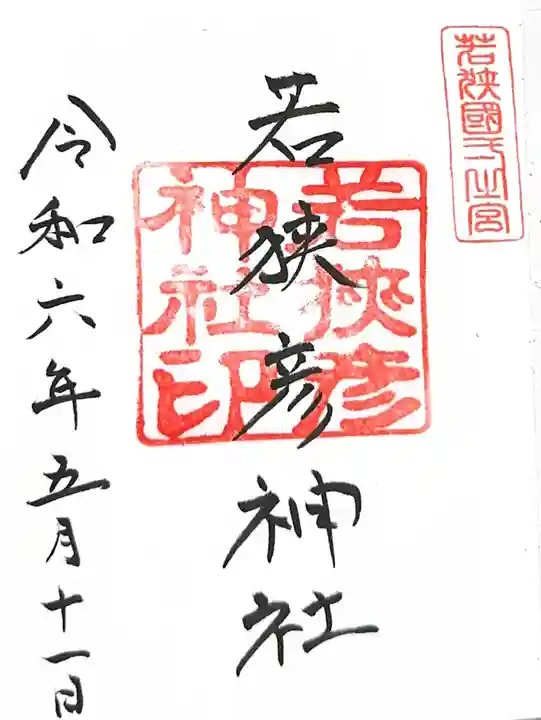 若狹國一之宮
若狭彦神社
若狭彦
神社印
令和六年五月十一日